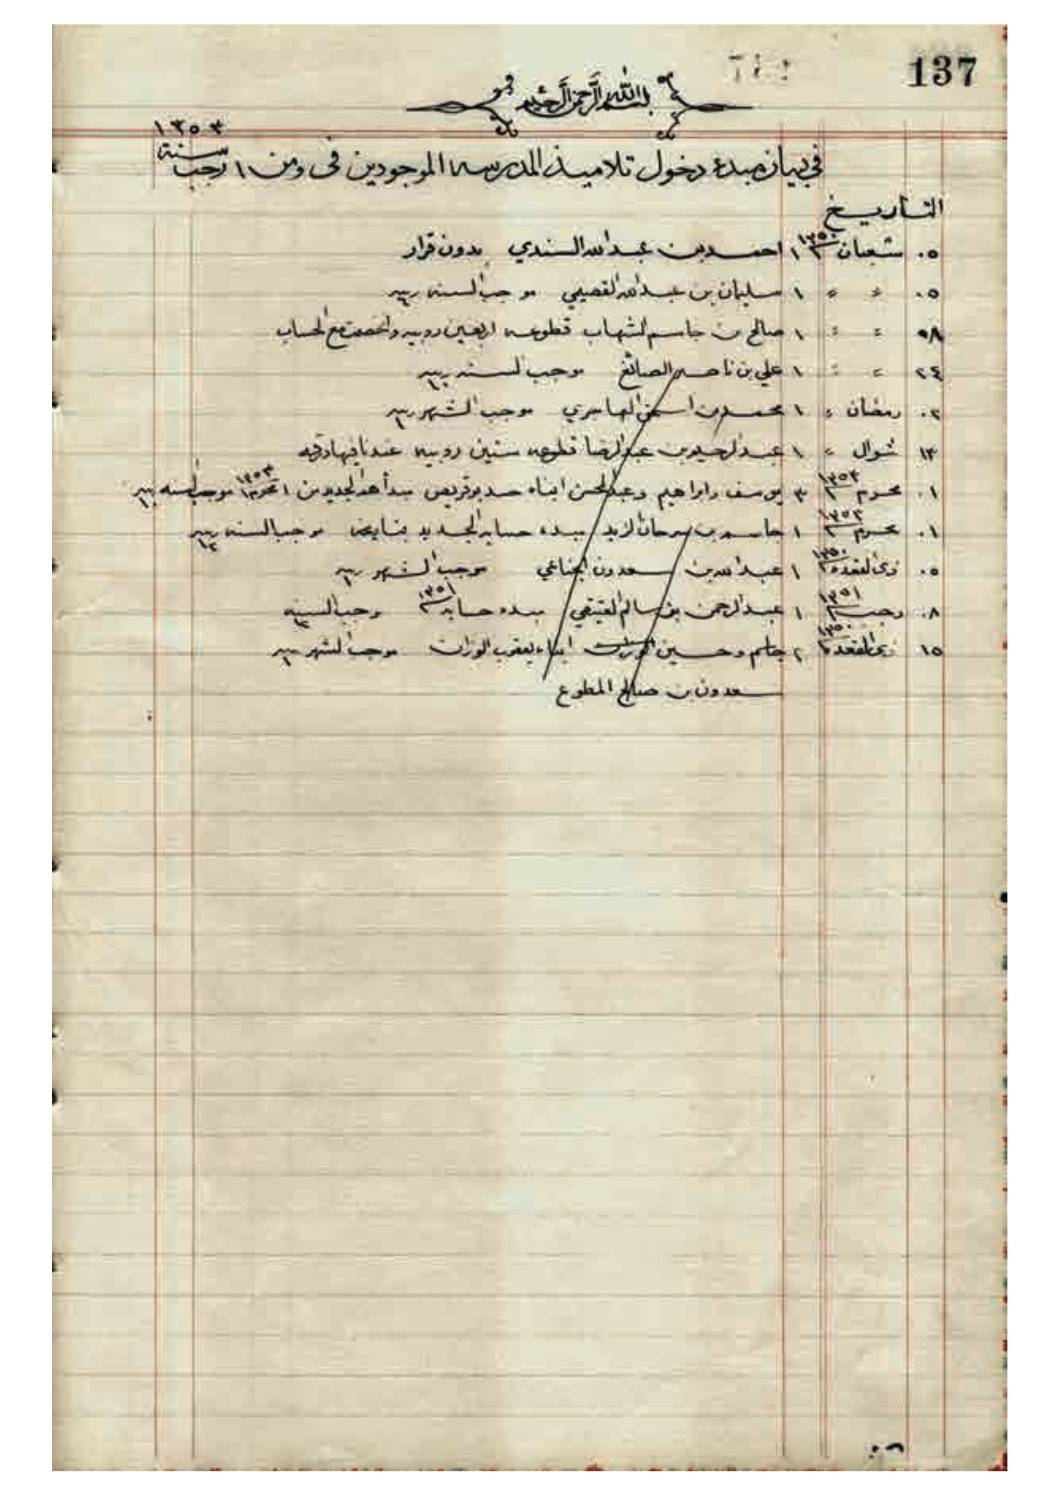 137
بسم الله الرحمن الرحيم
١٣٥٣
في بيان مبدء دخول تلاميذ المدرسه الموجودين في ومن ١ رجب سنة
التاريخ
٠٥ شعبان ١٣٥٠ ١ احمد بن عبدالله السندي بدون قرار
٠٥ " " ١ سليمان بن عبدالله القصيمي موجب السنه
٠٨ " " ١ صالح بن جاسم الشهاب قطوعه اربعين روبيه
٢٤ " " ١ علي بن ناصر الصائغ موجب لسنه
٠٢ رمضان " ١ محمد بن الهاجري موجب الشهر
١٣ شوال " ١ بن عبدالرضا قطوعه ستين روبيه
٠١ محرم ١٣٥٣ ٣ يوسف وابراهيم وعبدالمحسن ابناء حمد بوقريص من ١ محرم ١٣٥٣ موجب السنه
٠١ محرم ١٣٥٣ ١ جاسم بن مبدء حسابه الجديد موجب السنه
٠٥ ذي القعده ١٣٥٠ ١ عبدالله بن سعدون موجب الشهر
٠٨ رجب ١٣٥١ ١ عبدالرحمن بن سالم العتيقي مبدء حسابه ١٣٥١ موجب السنه
١٥ ذي القعده ١٣٥٠ ٢ جاسم وحسين الوزان ابناء يعقوب الوزان موجب الشهر
سعدون بن صالح المطوع